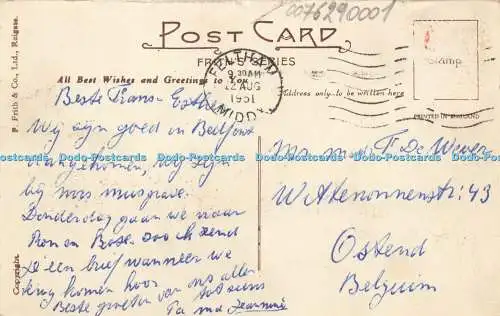 0076290001
POST CARD
FRITH'S SERIES
All Best Wishes and Greetings to You
FELTHAM
9.30AM
22 AUG
1951
MIDDX
Address only to be written here
Stamp
PRINTED IN ENGLAND
F. Frith & Co., Ltd., Reigate.
Copyright.
Beste Frans Esther
Wij zijn goed in Bedfont
aangekomen, wij zijn
bij mrs musgrave.
Donderdag gaan we naar
Ron en Rose. Zoo ik zend
U een brief wanneer we
terug komen hoor
Beste groeten van ons allen
tot siens
Ta
Jeannine
Mr. F De Wever
Wattenonnenstr: 43
Ostend
Belguim
Dodo-Postcards Dodo-Postcards Dodo-Postcards Dodo-Postcards Dodo-Postcards